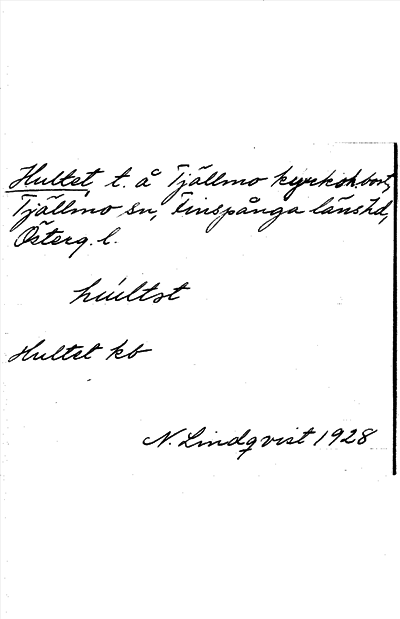 Hultet, t. å Tjällmo kyrkohbord,
Tjällmo sn, Finspånga länshd,
Österg. l.
húltet
Hultet kb
N. Lindqvist 1928